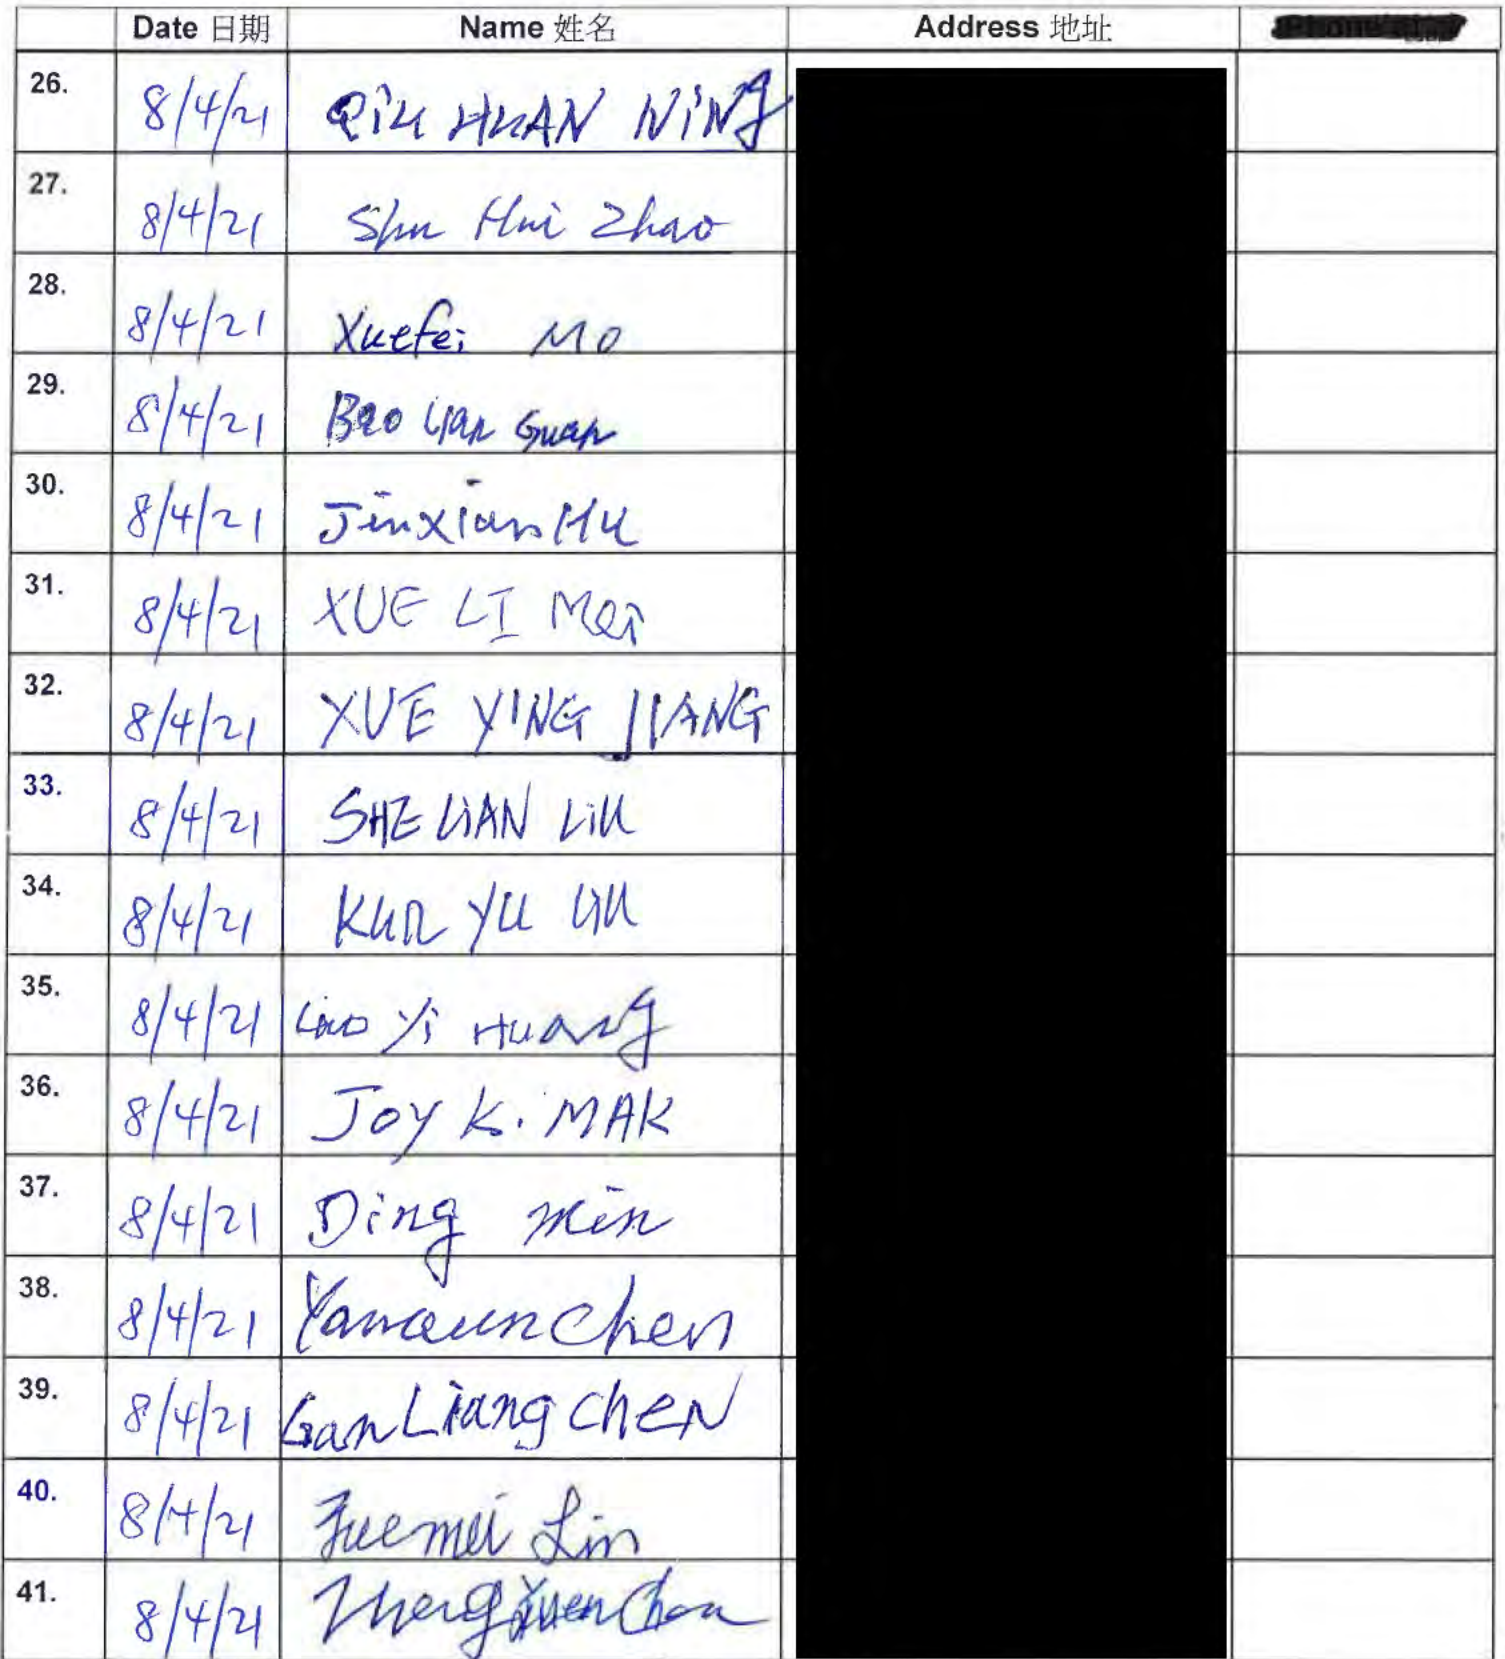 Date 日期 Name 姓名 Address 地址
26. 8/4/21 QiU HUAN NiNg
27. 8/4/21 Shu Hui Zhao
28. 8/4/21 Xuefei Mo
29. 8/4/21 Bao Lian Guan
30. 8/4/21 Jinxian Hu
31. 8/4/21 XUE LI Mei
32. 8/4/21 XUE YING JIANG
33. 8/4/21 SHE LiAN LiU
34. 8/4/21 KUN YU LiU
35. 8/4/21 Yi Huang
36. 8/4/21 JOY K. MAK
37. 8/4/21 Ding Min
38. 8/4/21 Chen
39. 8/4/21 Gan Liang CheN
40. 8/4/21 Lin
41. 8/4/21